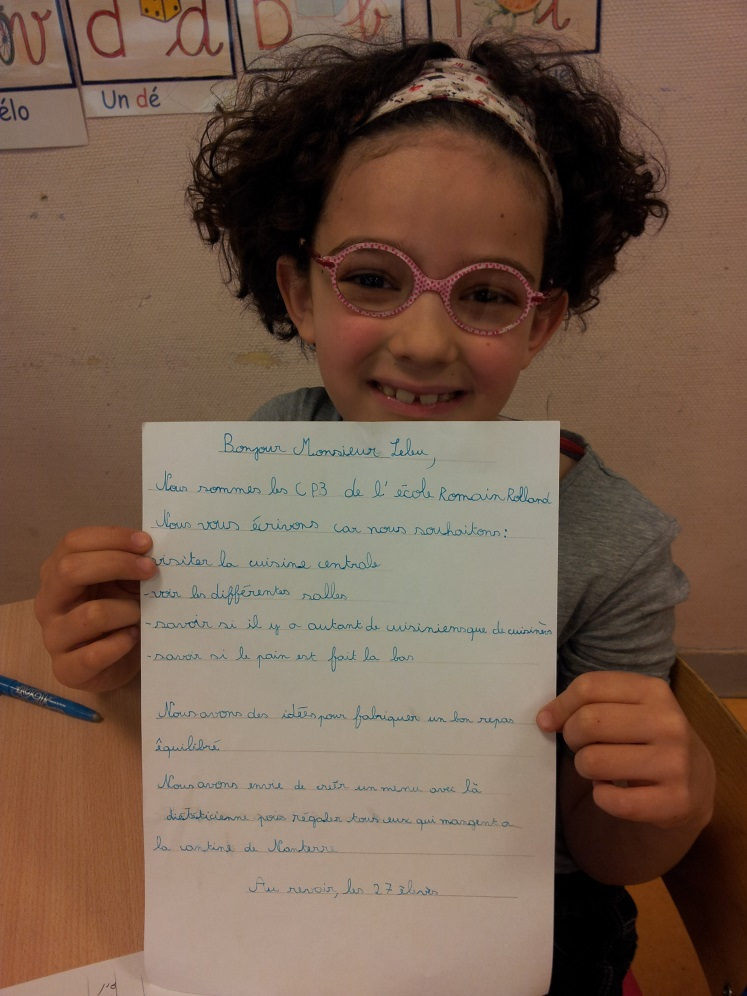 élo
d d
Un dé
Bonjour Monsieur Lebu,
Nous sommes les CP3 de l'école Romain Rolland
Nous vous écrivons car nous souhaitons:
-visiter la cuisine centrale
-voir les différentes salles
-savoir si il y a autant de cuisiniens que de cuisinères
-savoir si le pain est fait la bas
Nous avons des idées pour fabriquer un bon repas
équilibré
Nous avons envie de créér un menu avec là
diététicienne pour régaler tous ceux qui mangent a
la cantine de Nanterre
Au revoir, les 27 élèves